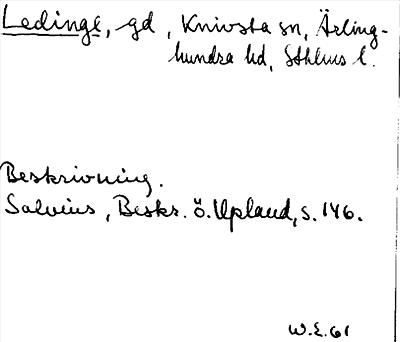 Ledinge, gd, Knivsta sn, Ärling-
hundra hd, Sthlms l.
Beskrivning.
Salvius, Beskr. ö. Upland, s. 146.
W.E. 61